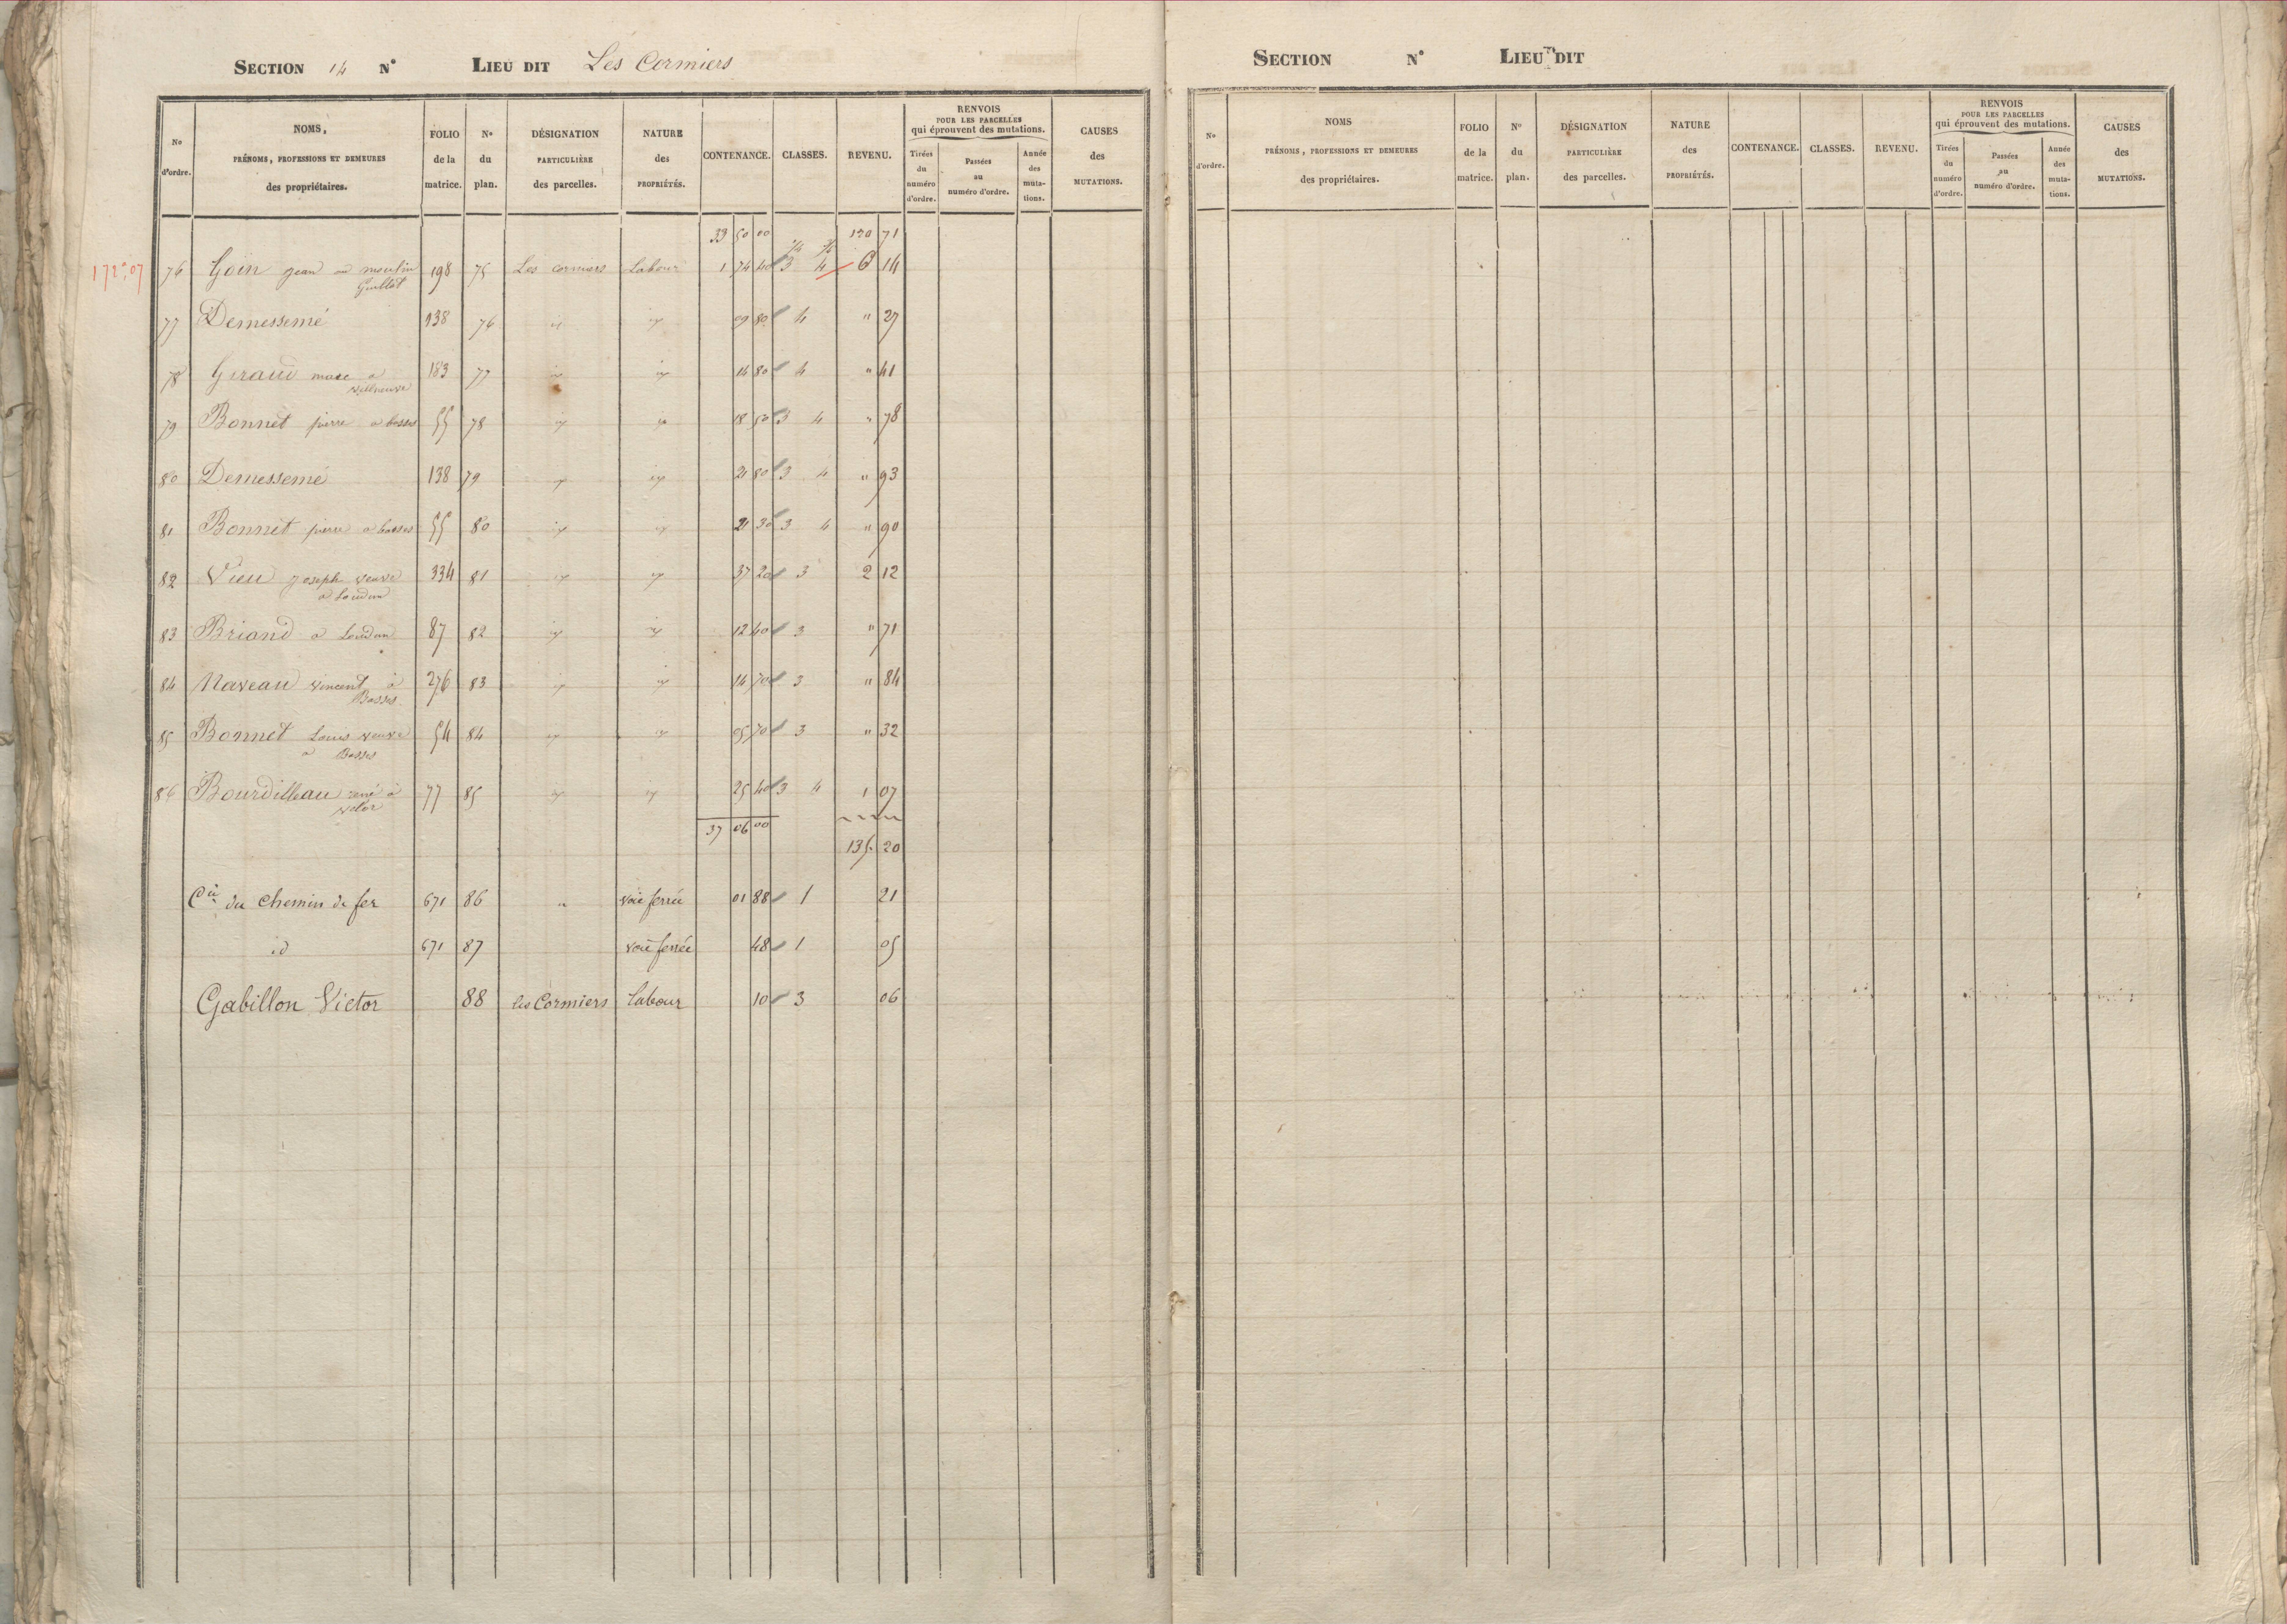 SECTION 14 N° LIEU DIT Les Cormiers
No d'ordre. NOMS, PRÉNOMS, PROFESSIONS ET DEMEURES des propriétaires. FOLIO de la matrice. N° du plan. DÉSIGNATION PARTICULIÈRE des parcelles. NATURE des PROPRIÉTÉS. CONTENANCE. CLASSES. REVENU. RENVOIS POUR LES PARCELLES qui éprouvent des mutations. Tirées du numéro d'ordre. Passées au numéro d'ordre. Année des mutations. CAUSES des MUTATIONS.
33 50 00 120 71
172a,07 76 Goin jean au moulin Guillot 198 75 Les cormiers Labour 1 74 40 3 4 6 14
77 Demessemé 138 76 id id 09 80 4 " 27
78 Giraud marc a villneuve 183 77 id id 14 80 4 " 41
79 Bonnet pierre a basses 55 78 id id 18 50 3 4 " 78
80 Demessemé 138 79 id id 21 80 3 4 " 93
81 Bonnet pierre a basses 55 80 id id 21 30 3 4 " 90
82 Vieu Joseph veuve a Loudun 334 81 id id 37 20 3 2 12
83 Briand a Loudun 87 82 id id 12 40 3 " 71
84 Naveau vincent à Basses 276 83 id id 14 70 3 " 84
85 Bonnet Louis veuve a Basses 54 84 id id 05 70 3 " 32
86 Bourdilleau rené à velor 77 85 id id 25 40 3 4 1 07
37 06 00
135. 20
Cie du Chemin de fer 671 86 " voie ferrée 01 88 1 21
id 671 87 voie ferrée 48 1 05
Gabillon Victor 88 les Cormiers Labour 10 3 06
SECTION N° LIEU DIT
No d'ordre. NOMS PRÉNOMS, PROFESSIONS ET DEMEURES des propriétaires. FOLIO de la matrice. N° du plan. DÉSIGNATION PARTICULIÈRE des parcelles. NATURE des PROPRIÉTÉS. CONTENANCE. CLASSES. REVENU. RENVOIS POUR LES PARCELLES qui éprouvent des mutations. Tirées du numéro d'ordre. Passées au numéro d'ordre. Année des mutations. CAUSES des MUTATIONS.